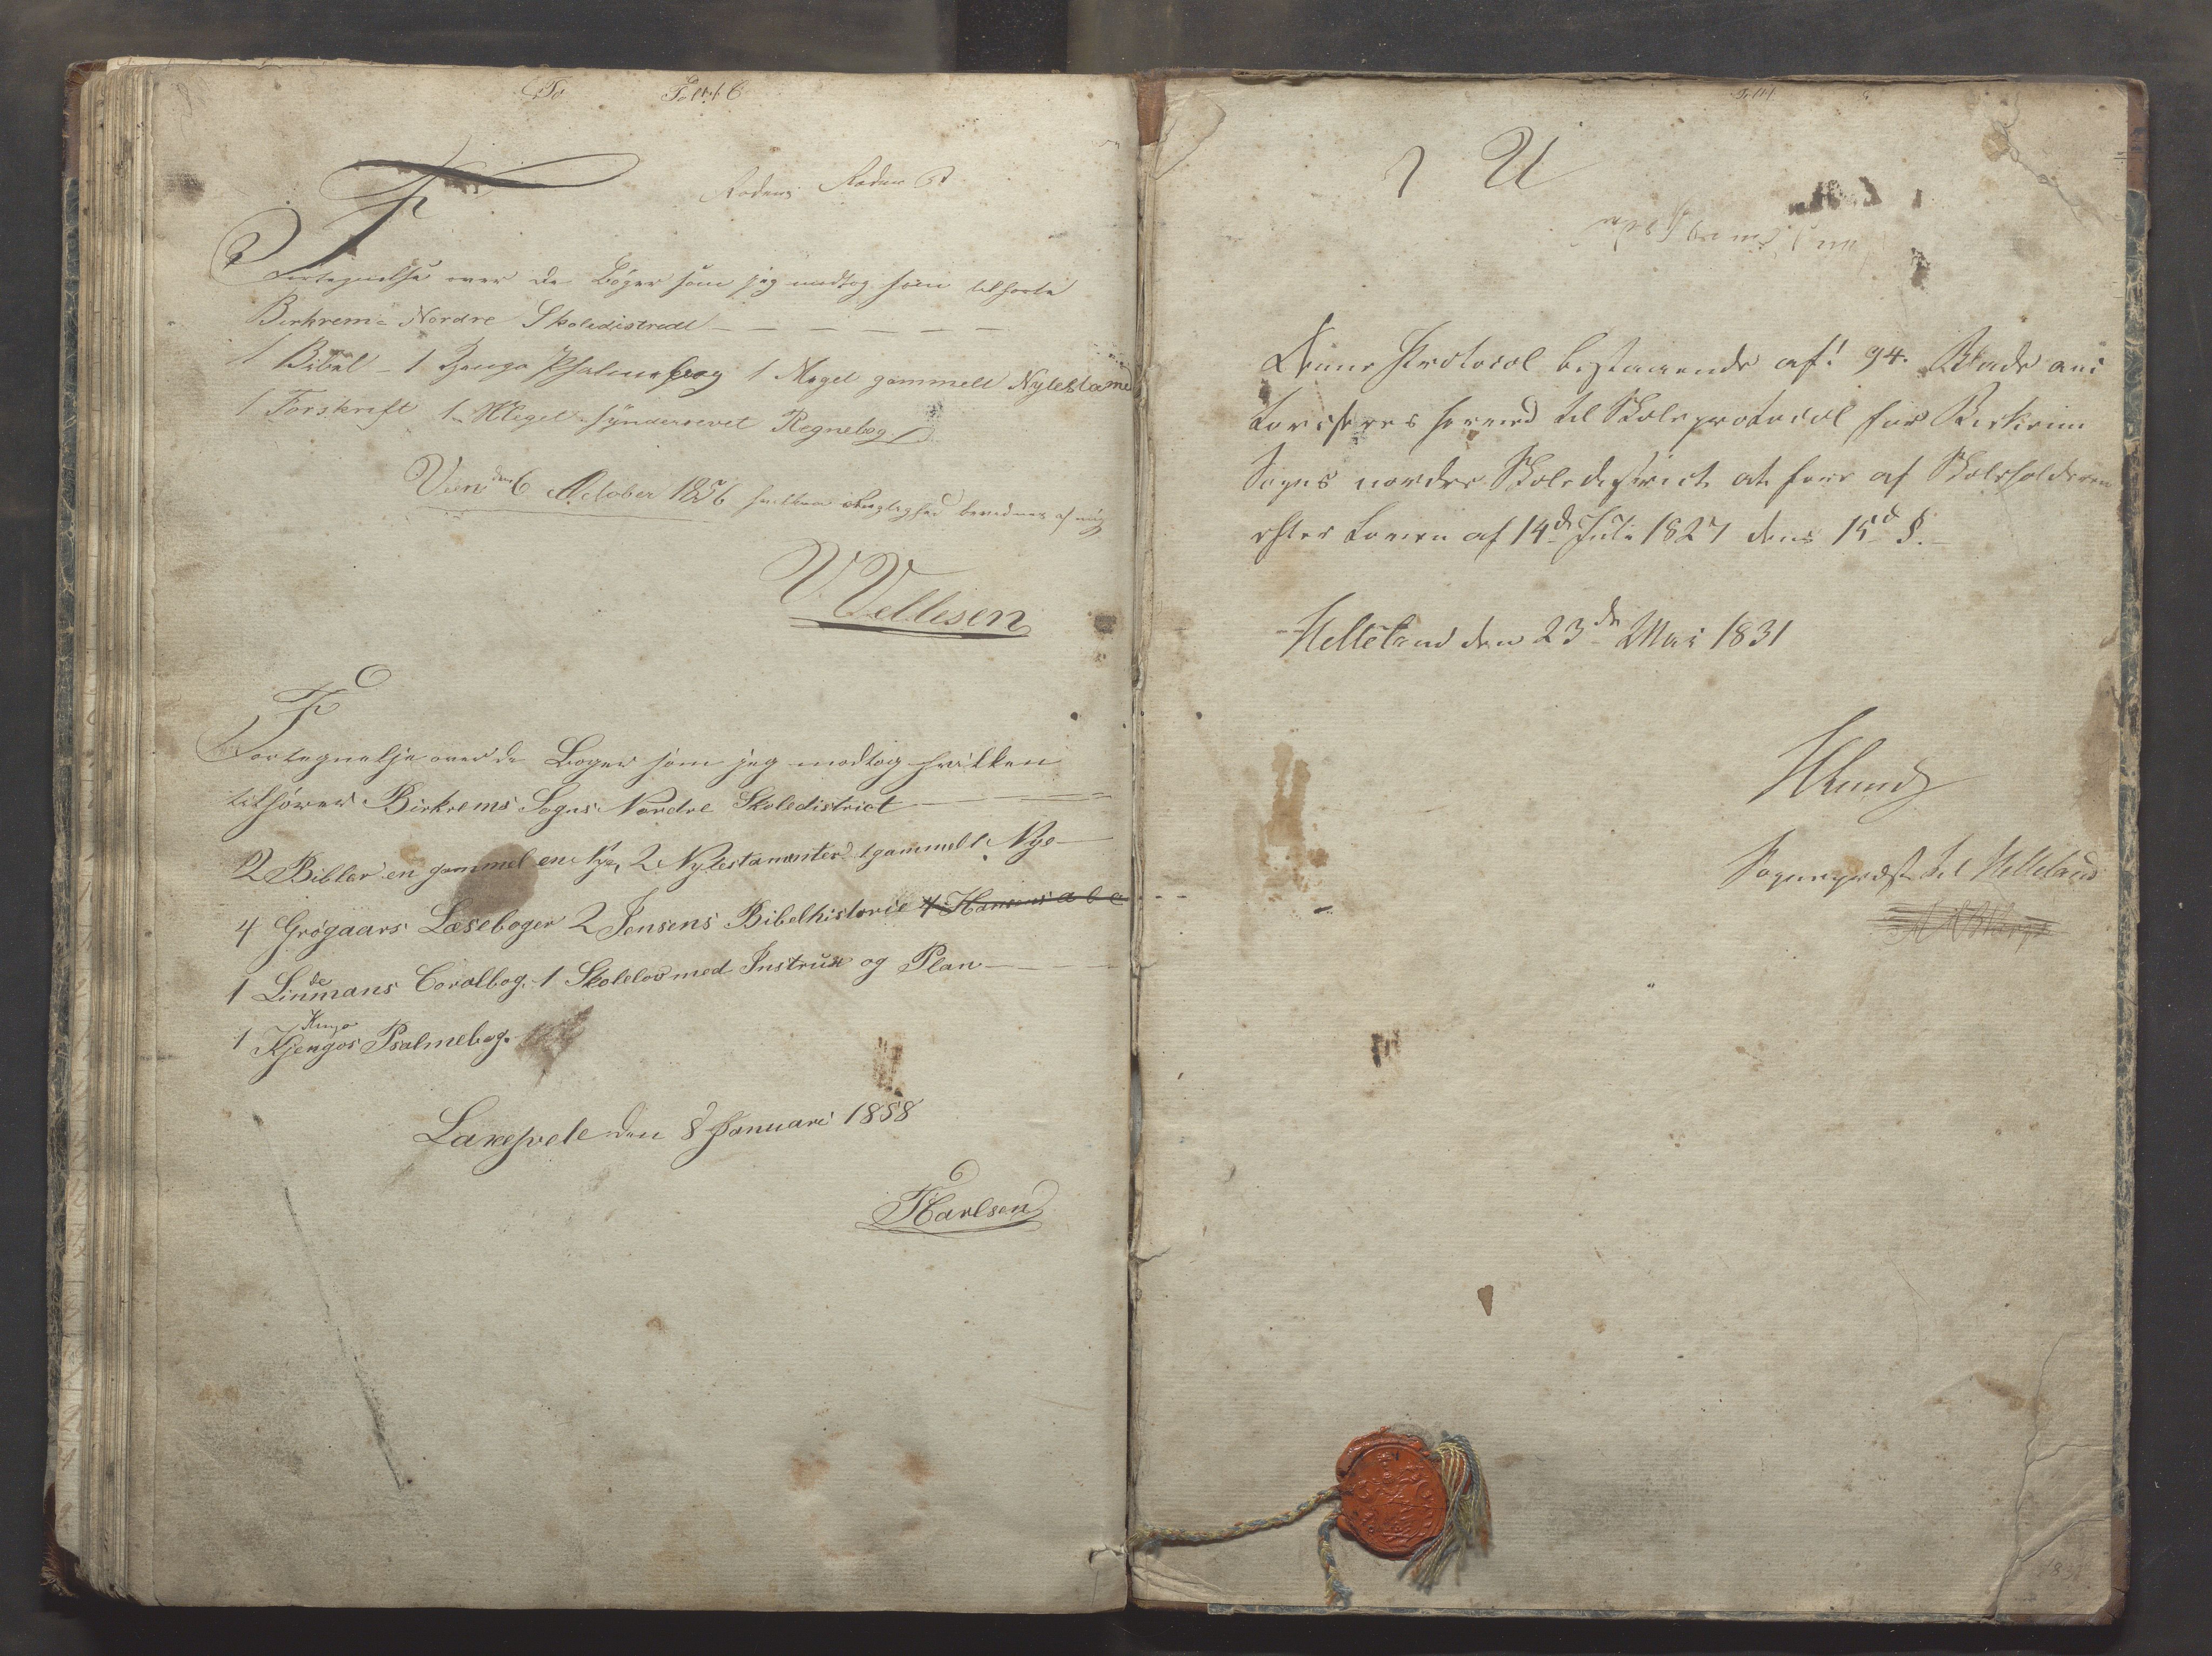 Fortegnelse over de Bøger som jeg modtog som tilhørte
Birkrems Nordre Skoledistrect
1 Bibel - 1 Psalmebog 1 Meget gammelt Nytestame
1 Forskrift 1 Meget sønderrevet Regnebog
den 6 October 1856 af mig
V. Vellesen
Fortegnelse over de Boger som jeg modtog hvilken
tilhører Birkrems Sogns Nordre Skoledistrict
2 Bibler en gammel en Nye, 2 Nytestamenter 1 gammel 1 Nye
4 Grøgaars Læseboger 2 Jensens Bibelhistorie 4 Hansens a b c
1 Linmans de Coralbog. 1 Skolelov med Instrux og Plan
1 Kjengos Kingo Psalmebog.
den 8 Januari 1858
Karlsen
Denne Protocol bestaaende af: 94. Blade auc
toriseres herved til Skoleprotocol for Birkrem
Sogns nordre Skoledistrict at føre af Skoleholderen
efter Loven af 14d Juli 1827 dens 15d §.
Helleland den 23de Mai 1831
HLund
Sogneprest til Helleland